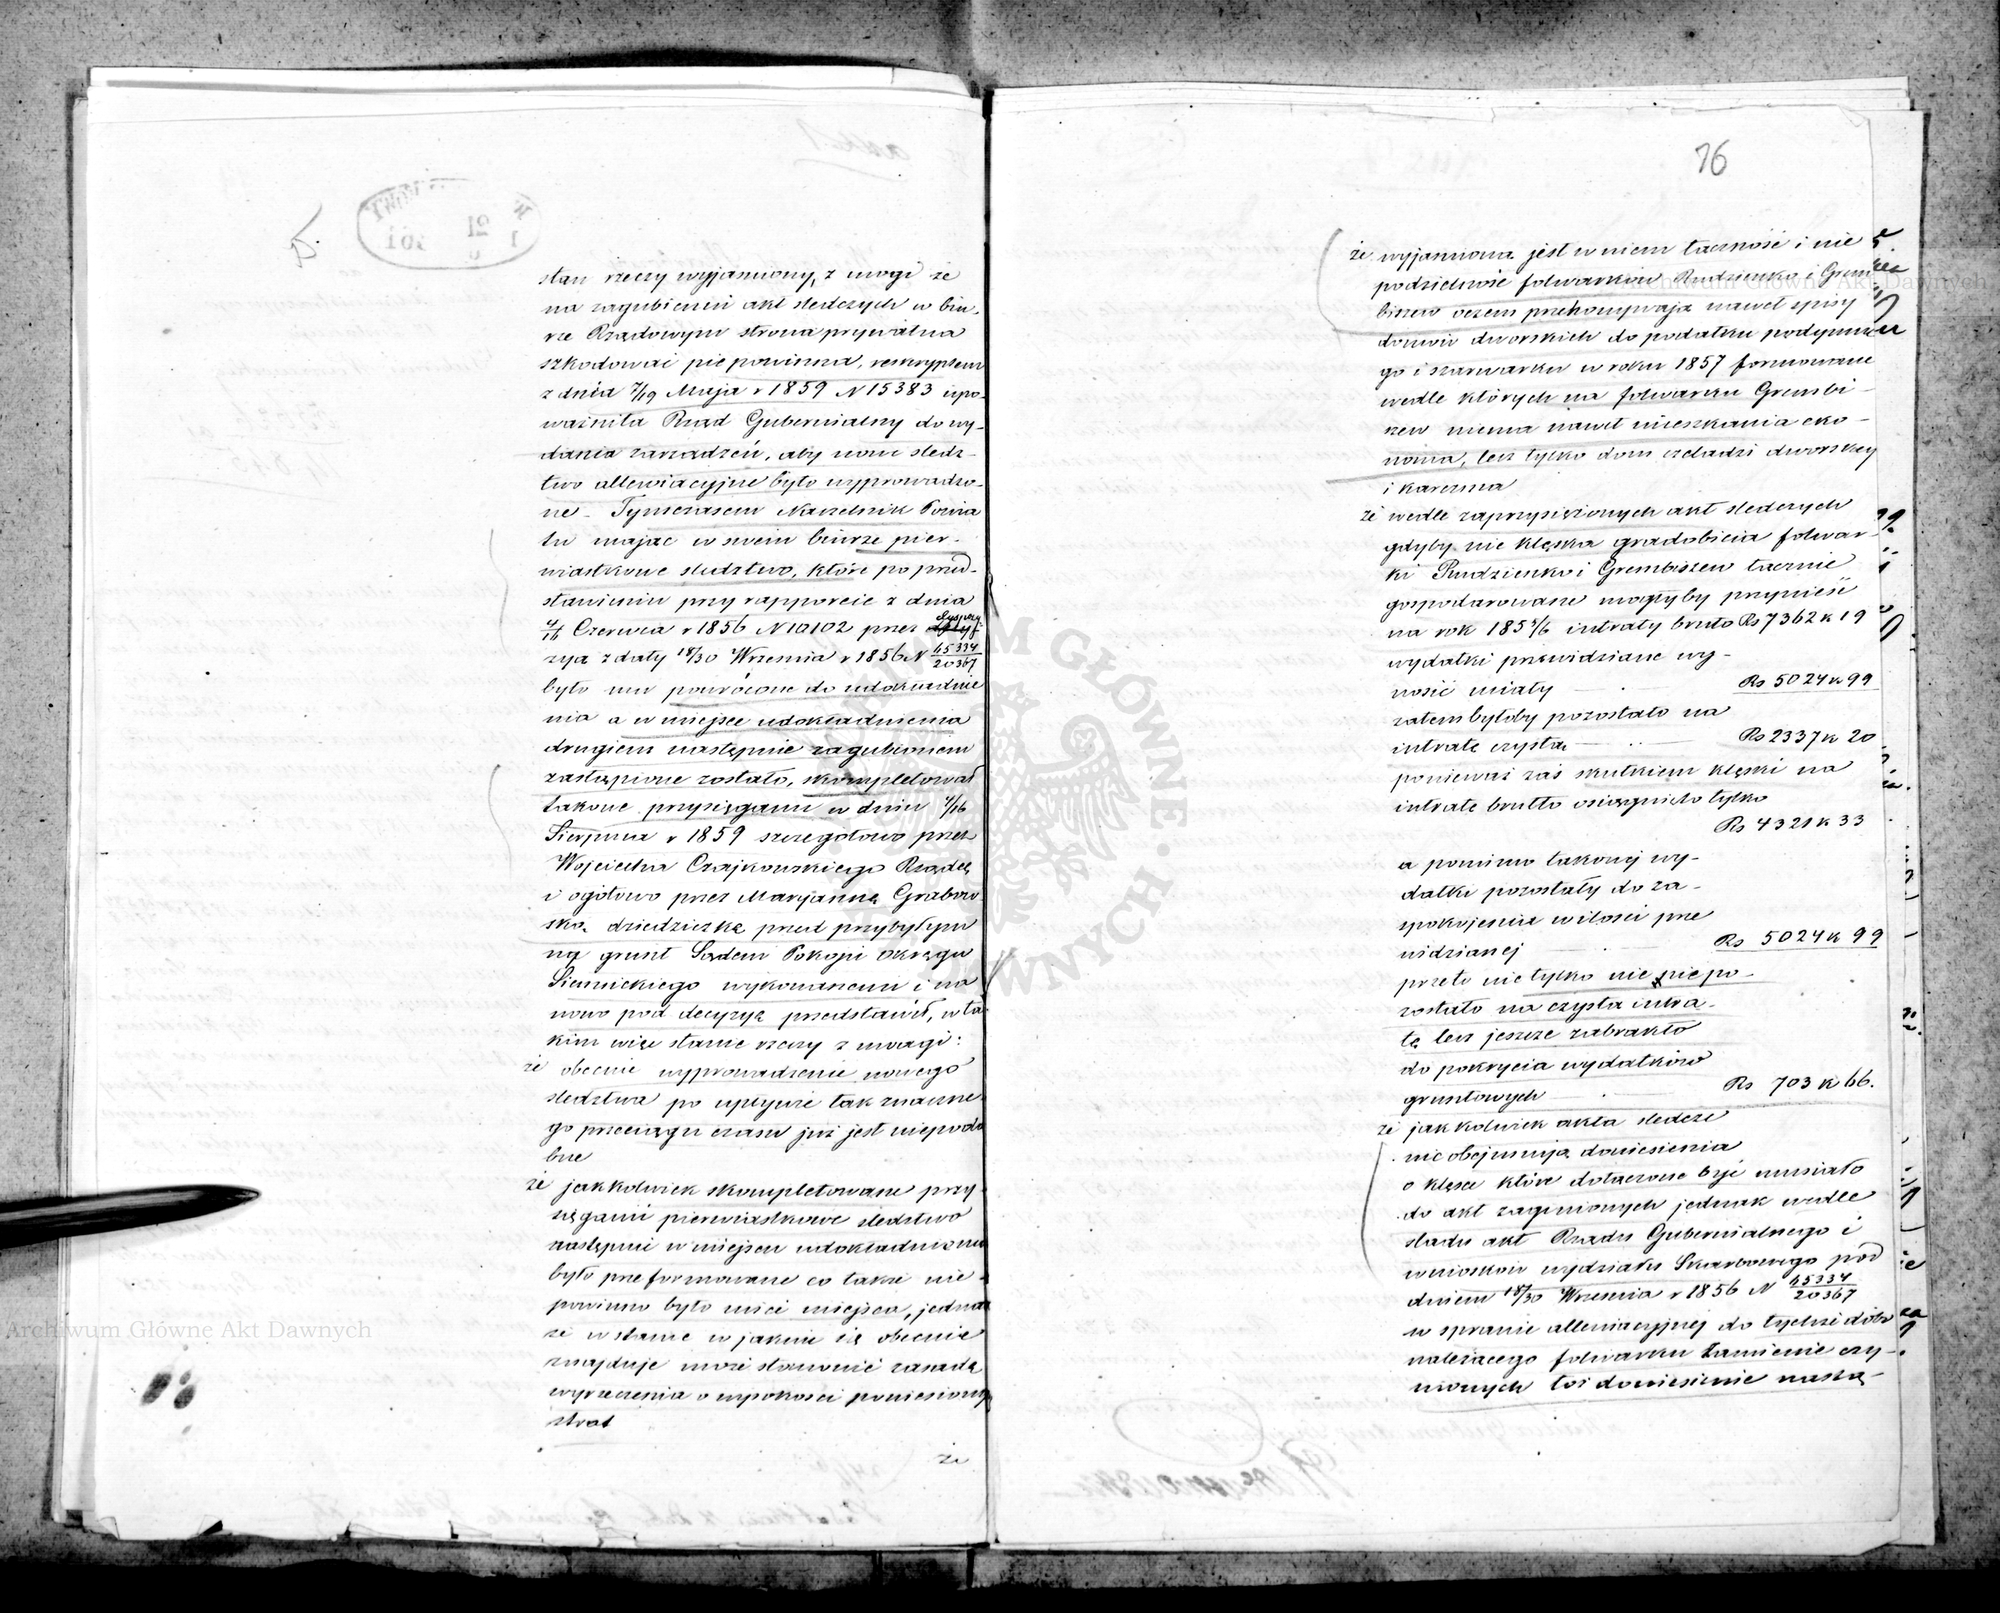 stan rzeczy wyjaśniony, z uwagi że
na zagubieniu akt śledczych w biu-
rze Rządowym strona prywatna
szkodować nie powinna, reskryptem
z dnia 7/19 Maja r 1859 N 15383 upo-
ważniła Rząd Gubernialny do wy-
dania zarządzeń, aby nowe śledz-
two allewiacyjne było wyprowadzo-
ne - Tymczasem Naczelnik Powia
tu mając w swem biurze pier-
wiastkowe śledztwo, które po przed-
stawieniu przy rapporcie z dnia
4/16 Czerwca r 1856 N 10102 przez Dyspozy-
zya z daty 18/30 Września r 1856 N 45334/20367
było mu powrócone do udokładnie
nia a w miejsce udokładnienia
drugiem następnie zagubionem
zastąpione zostało, skompletował
takowe przysięgami w dniu 4/16
Sierpnia r 1859 szczegółowo przez
Wojciecha Czajkowskiego Rządcę
i ogółowo przez Maryannę Grabow-
ską dziedziczkę przed przybyłym
na grunt Sądem Pokoju Okręgu
Siennickiego wykonanemi i na
nowo pod decyzyą przedstawił, w ta
kim więc stanie rzeczy z uwagi:
że obecnie wyprowadzenie nowego
śledztwa po upływie tak znaczne-
go przeciągu czasu już jest niepodo
bne
że jakkolwiek skompletowane przy-
sięgami pierwiastkowe śledztwo
następnie w miejscu udokładnienia
było preformowane co także nie-
powinno było mieć miejsca, jednak
że w stanie w jakim się obecnie
znajduje może stanowić zasadę
wyrzeczenia o wysokości poniesionych
strat
że
76
że wyjaśniona jest w niem łączność i nie
podzielność folwarków Rudzienko i Grem
biszew oczem przekonywają nawet spisy
domów dworskich do podatku podymne
go i szarwarku w roku 1857 formowane
wedle których na folwarku Grembi-
szew niema nawet mieszkania eko-
noma, lecz tylko dom czeladzi dworskiej
i karczma
że wedle zaprzysiężonych akt śledczych
gdyby nie klęska gradobicia folwar-
ki Rudzienko i Grembiszew łącznie
gospodarowane mogłyby przynieść
na rok 1855/6 intraty brutto Rs 7362 k 19
wydatki przewidziane wy-
nosić miały Rs 5024 k 99
zatem byłoby pozostało na
intratę czystą Rs 2337 k 20
ponieważ zaś skutkiem klęski na
intratę brutto osiągnięto tylko
Rs 4321 k 33
a pomimo takowej wy-
datki pozostały do za-
spokojenia w ilości prze
widzianej Rs 5024 k 99
przeto nie tylko nie nie po-
zostało na czystą intra-
tę lecz jeszcze zabrakło
do pokrycia wydatków
gruntowych Rs 703 k 66.
że jakkolwiek akta śledcze
nie obejmują doniesienia
o klęsce które dołączone być musiało
do akt zaginionych jednak wedle
śladu akt Rządu Gubernialnego i
wniosków wydziału Skarbowego pod
dniem 18/30 Września r 1856 N 45334/20367
w sprawie allewiacyjnej do tychże dóbr
należącego folwarku Łamienie czy-
nionych toż doniesienie nastą-
Archiwum Główne Akt Dawnych